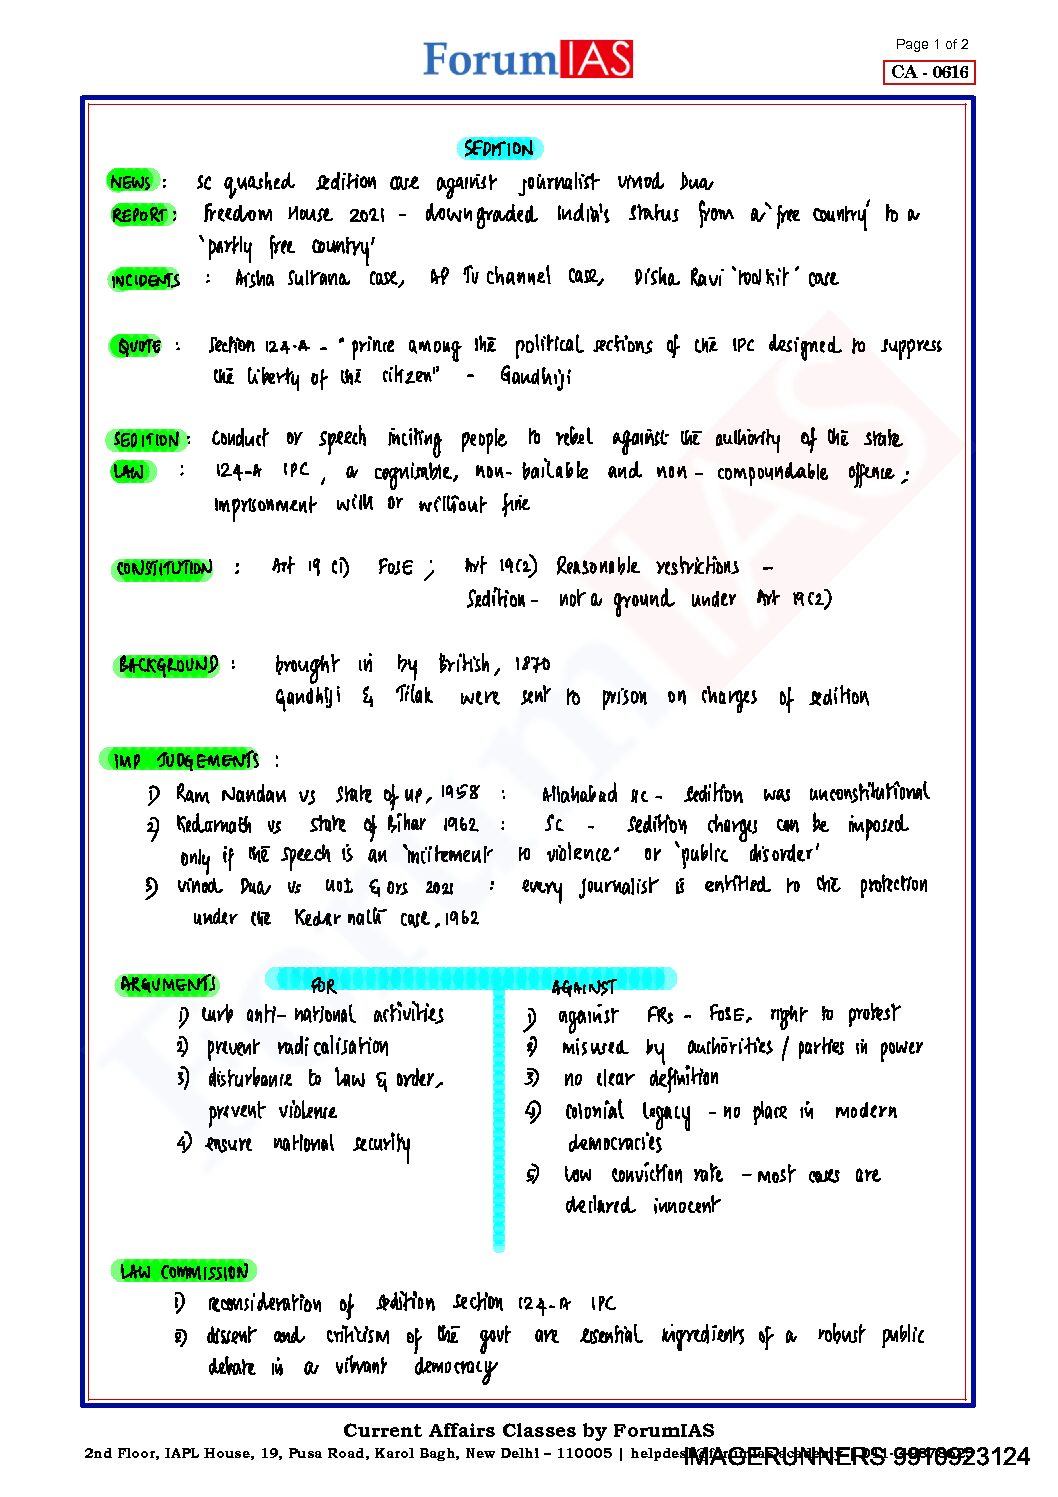 ForumIAS
Page 1 of 2
CA - 0616
SEDITION
NEWS : SC quashed sedition case against journalist Vinod Dua
REPORT : Freedom House 2021 - downgraded India's status from a 'free country' to a
'partly free country'
INCIDENTS : Aisha Sultana case, AP TV channel case, Disha Ravi 'toolkit' case
QUOTE : Section 124-A - "prince among the political sections of the IPC designed to suppress
the liberty of the citizen" - Gandhiji
SEDITION : Conduct or speech inciting people to rebel against the authority of the state
LAW : 124-A IPC, a cognisable, non-bailable and non-compoundable offence ;
imprisonment with or without fine
CONSTITUTION : Art 19 (1) FoSE ; Art 19(2) Reasonable restrictions -
Sedition - not a ground under Art 19(2)
BACKGROUND : brought in by British, 1870
Gandhiji & Tilak were sent to prison on charges of sedition
IMP JUDGEMENTS :
1) Ram Nandan vs State of UP, 1958 : Allahabad HC - sedition was unconstitutional
2) Kedarnath vs State of Bihar 1962 : SC - sedition charges can be imposed
only if the speech is an 'incitement to violence' or 'public disorder'
3) Vinod Dua vs UOI & Ors 2021 : every journalist is entitled to the protection
under the Kedar nath case, 1962
ARGUMENTS FOR AGAINST
1) curb anti-national activities
2) prevent radicalisation
3) disturbance to law & order,
prevent violence
4) ensure national security
1) against FRs - FoSE, right to protest
2) misused by authorities / parties in power
3) no clear definition
4) colonial legacy - no place in modern
democracies
5) low conviction rate - most cases are
declared innocent
LAW COMMISSION
1) reconsideration of sedition section 124-A IPC
2) dissent and criticism of the govt are essential ingredients of a robust public
debate in a vibrant democracy
Current Affairs Classes by ForumIAS
2nd Floor, IAPL House, 19, Pusa Road, Karol Bagh, New Delhi – 110005 |
IMAGERUNNERS 9916923124
ForumIAS